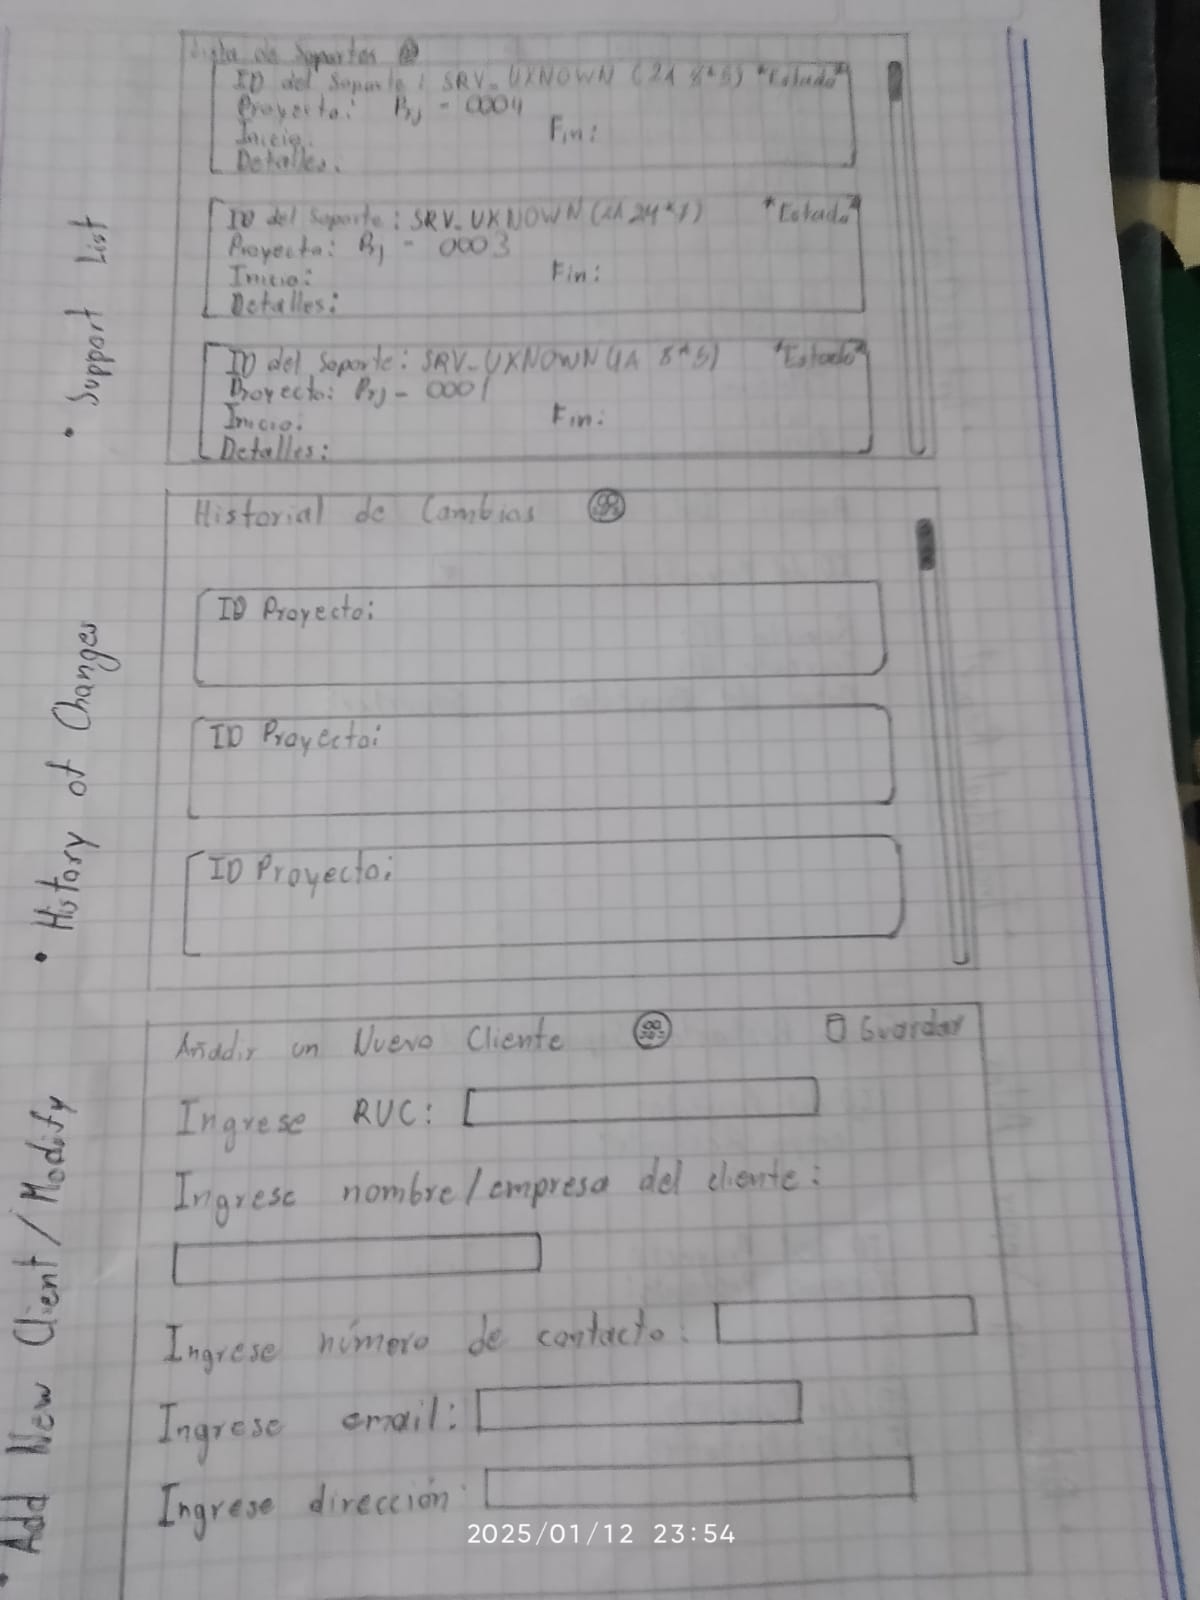 Lista de Soportes
ID del Soporte: SRV-UXNOWN (2A 8*5) *Estado*
Proyecto: Prj - 0004
Inicio: Fin:
Detalles:
ID del Soporte: SRV-UXNOWN (2A 24*7) *Estado*
Proyecto: Prj - 0003
Inicio: Fin:
Detalles:
ID del Soporte: SRV-UXNOWN (1A 8*5) *Estado*
Proyecto: Prj - 0001
Inicio: Fin:
Detalles:
• Support List
Historial de Cambios
ID Proyecto:
ID Proyecto:
ID Proyecto:
• History of Changes
Añadir un Nuevo Cliente Guardar
Ingrese RUC:
Ingrese nombre/empresa del cliente:
Ingrese número de contacto:
Ingrese email:
Ingrese dirección:
• Add New Client/Modify
2025/01/12 23:54